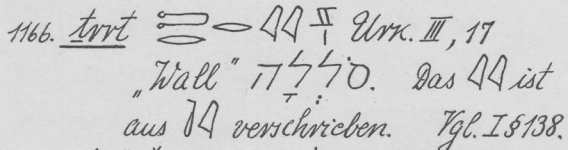 1166. ṯrrt Urk. III, 17
„Wall“ סֹלְלָה. Das ist
aus verschrieben. Vgl. I § 138.